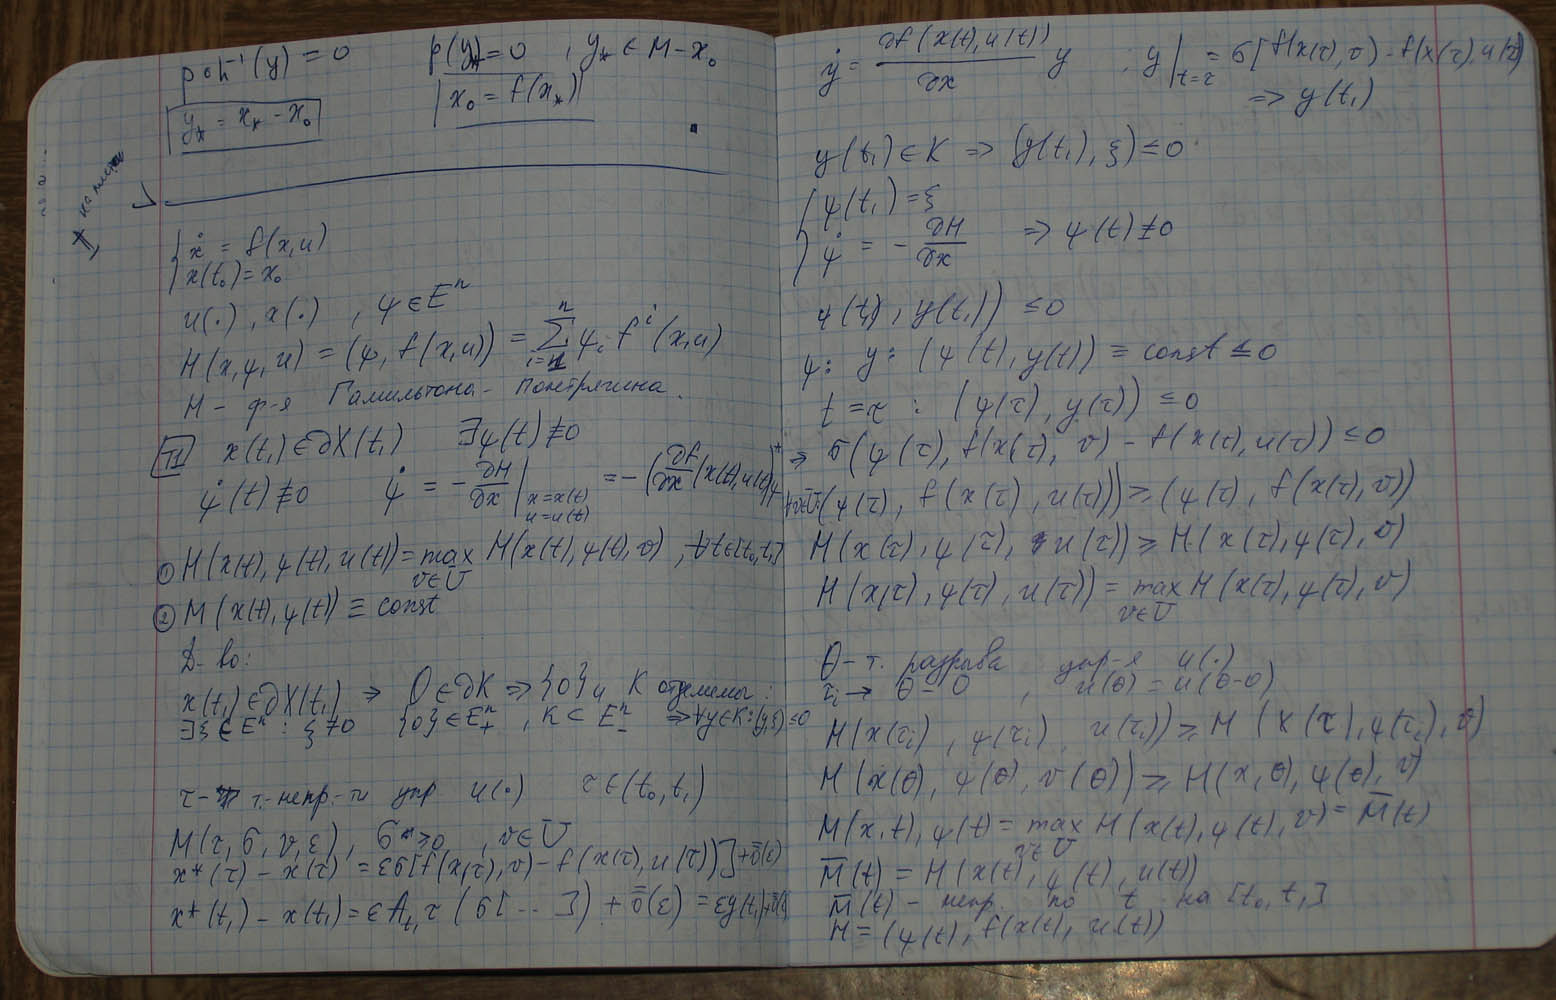 p∘h⁻¹(y) = 0    p(y*) = 0 , y* ∈ M - x₀
y* = x* - x₀    x₀ = f(x*)
{ ẋ = f(x,u)
x(t₀) = x₀
u(·), x(·) , ψ ∈ Eⁿ
H(x,ψ,u) = (ψ, f(x,u)) = Σ_{i=1}^{n} ψᵢ fⁱ(x,u)
H - ф-я Гамильтона - Понтрягина.
[T1] x(t₁) ∈ ∂X(t₁)    ∃ψ(t) ≢ 0
ψ(t) ≢ 0    ψ̇ = - ∂H/∂x |_{x=x(t), u=u(t)} = - (∂f/∂x (x(t), u(t)))* ψ
① H(x(t), ψ(t), u(t)) = max_{v∈U} H(x(t), ψ(t), v) , ∀t∈[t₀,t₁]
② M(x(t), ψ(t)) ≡ const
Д-во:
x(t₁) ∈ ∂X(t₁) ⇒ 0 ∈ ∂K ⇒ {0} и K отделимы:
∃ξ ∈ Eⁿ : ξ ≠ 0    {0} ∈ Eⁿ₊ , K ⊂ Eⁿ₋ ⇒ ∀y∈K: (y,ξ) ≤ 0
τ - т. непр-ти упр u(·)    τ ∈ (t₀, t₁)
M(τ, σ, v, ε) , σ ≥ 0 , v ∈ U
x*(τ) - x(τ) = εσ[f(x(τ), v) - f(x(τ), u(τ))] + ō(ε)
x*(t₁) - x(t₁) = εA_{t₁τ} (σ[ ... ]) + ō(ε) = εy(t₁) + ō(ε)
ẏ = ∂f(x(t), u(t))/∂x y ; y|_{t=τ} = σ[f(x(τ), v) - f(x(τ), u(τ))]
⇒ y(t₁)
y(t₁) ∈ K ⇒ (y(t₁), ξ) ≤ 0
{ ψ(t₁) = ξ
ψ̇ = - ∂H/∂x ⇒ ψ(t) ≠ 0
ψ(t₁), y(t₁)) ≤ 0
ψ: y: (ψ(t), y(t)) ≡ const ≤ 0
t = τ : (ψ(τ), y(τ)) ≤ 0
⇒ σ(ψ(τ), f(x(τ), v) - f(x(τ), u(τ)) ≤ 0
∀v∈U: (ψ(τ), f(x(τ), u(τ))) ≥ (ψ(τ), f(x(τ), v))
H(x(τ), ψ(τ), u(τ)) ≥ H(x(τ), ψ(τ), v)
H(x(τ), ψ(τ), u(τ)) = max_{v∈U} H(x(τ), ψ(τ), v)
θ - т. разрыва упр-я u(·)
τᵢ → θ - 0 , u(θ) = u(θ-0)
H(x(τᵢ), ψ(τᵢ), u(τᵢ)) ≥ H(x(τ), ψ(τᵢ), v)
H(x(θ), ψ(θ), v(θ)) ≥ H(x,θ), ψ(θ), v)
M(x,t), ψ(t) = max_{v∈U} H(x(t), ψ(t), v) = M̄(t)
M̄(t) = H(x(t), ψ(t), u(t))
M̄(t) - непр. по t на [t₀, t₁]
H = (ψ(t), f(x(t), u(t))